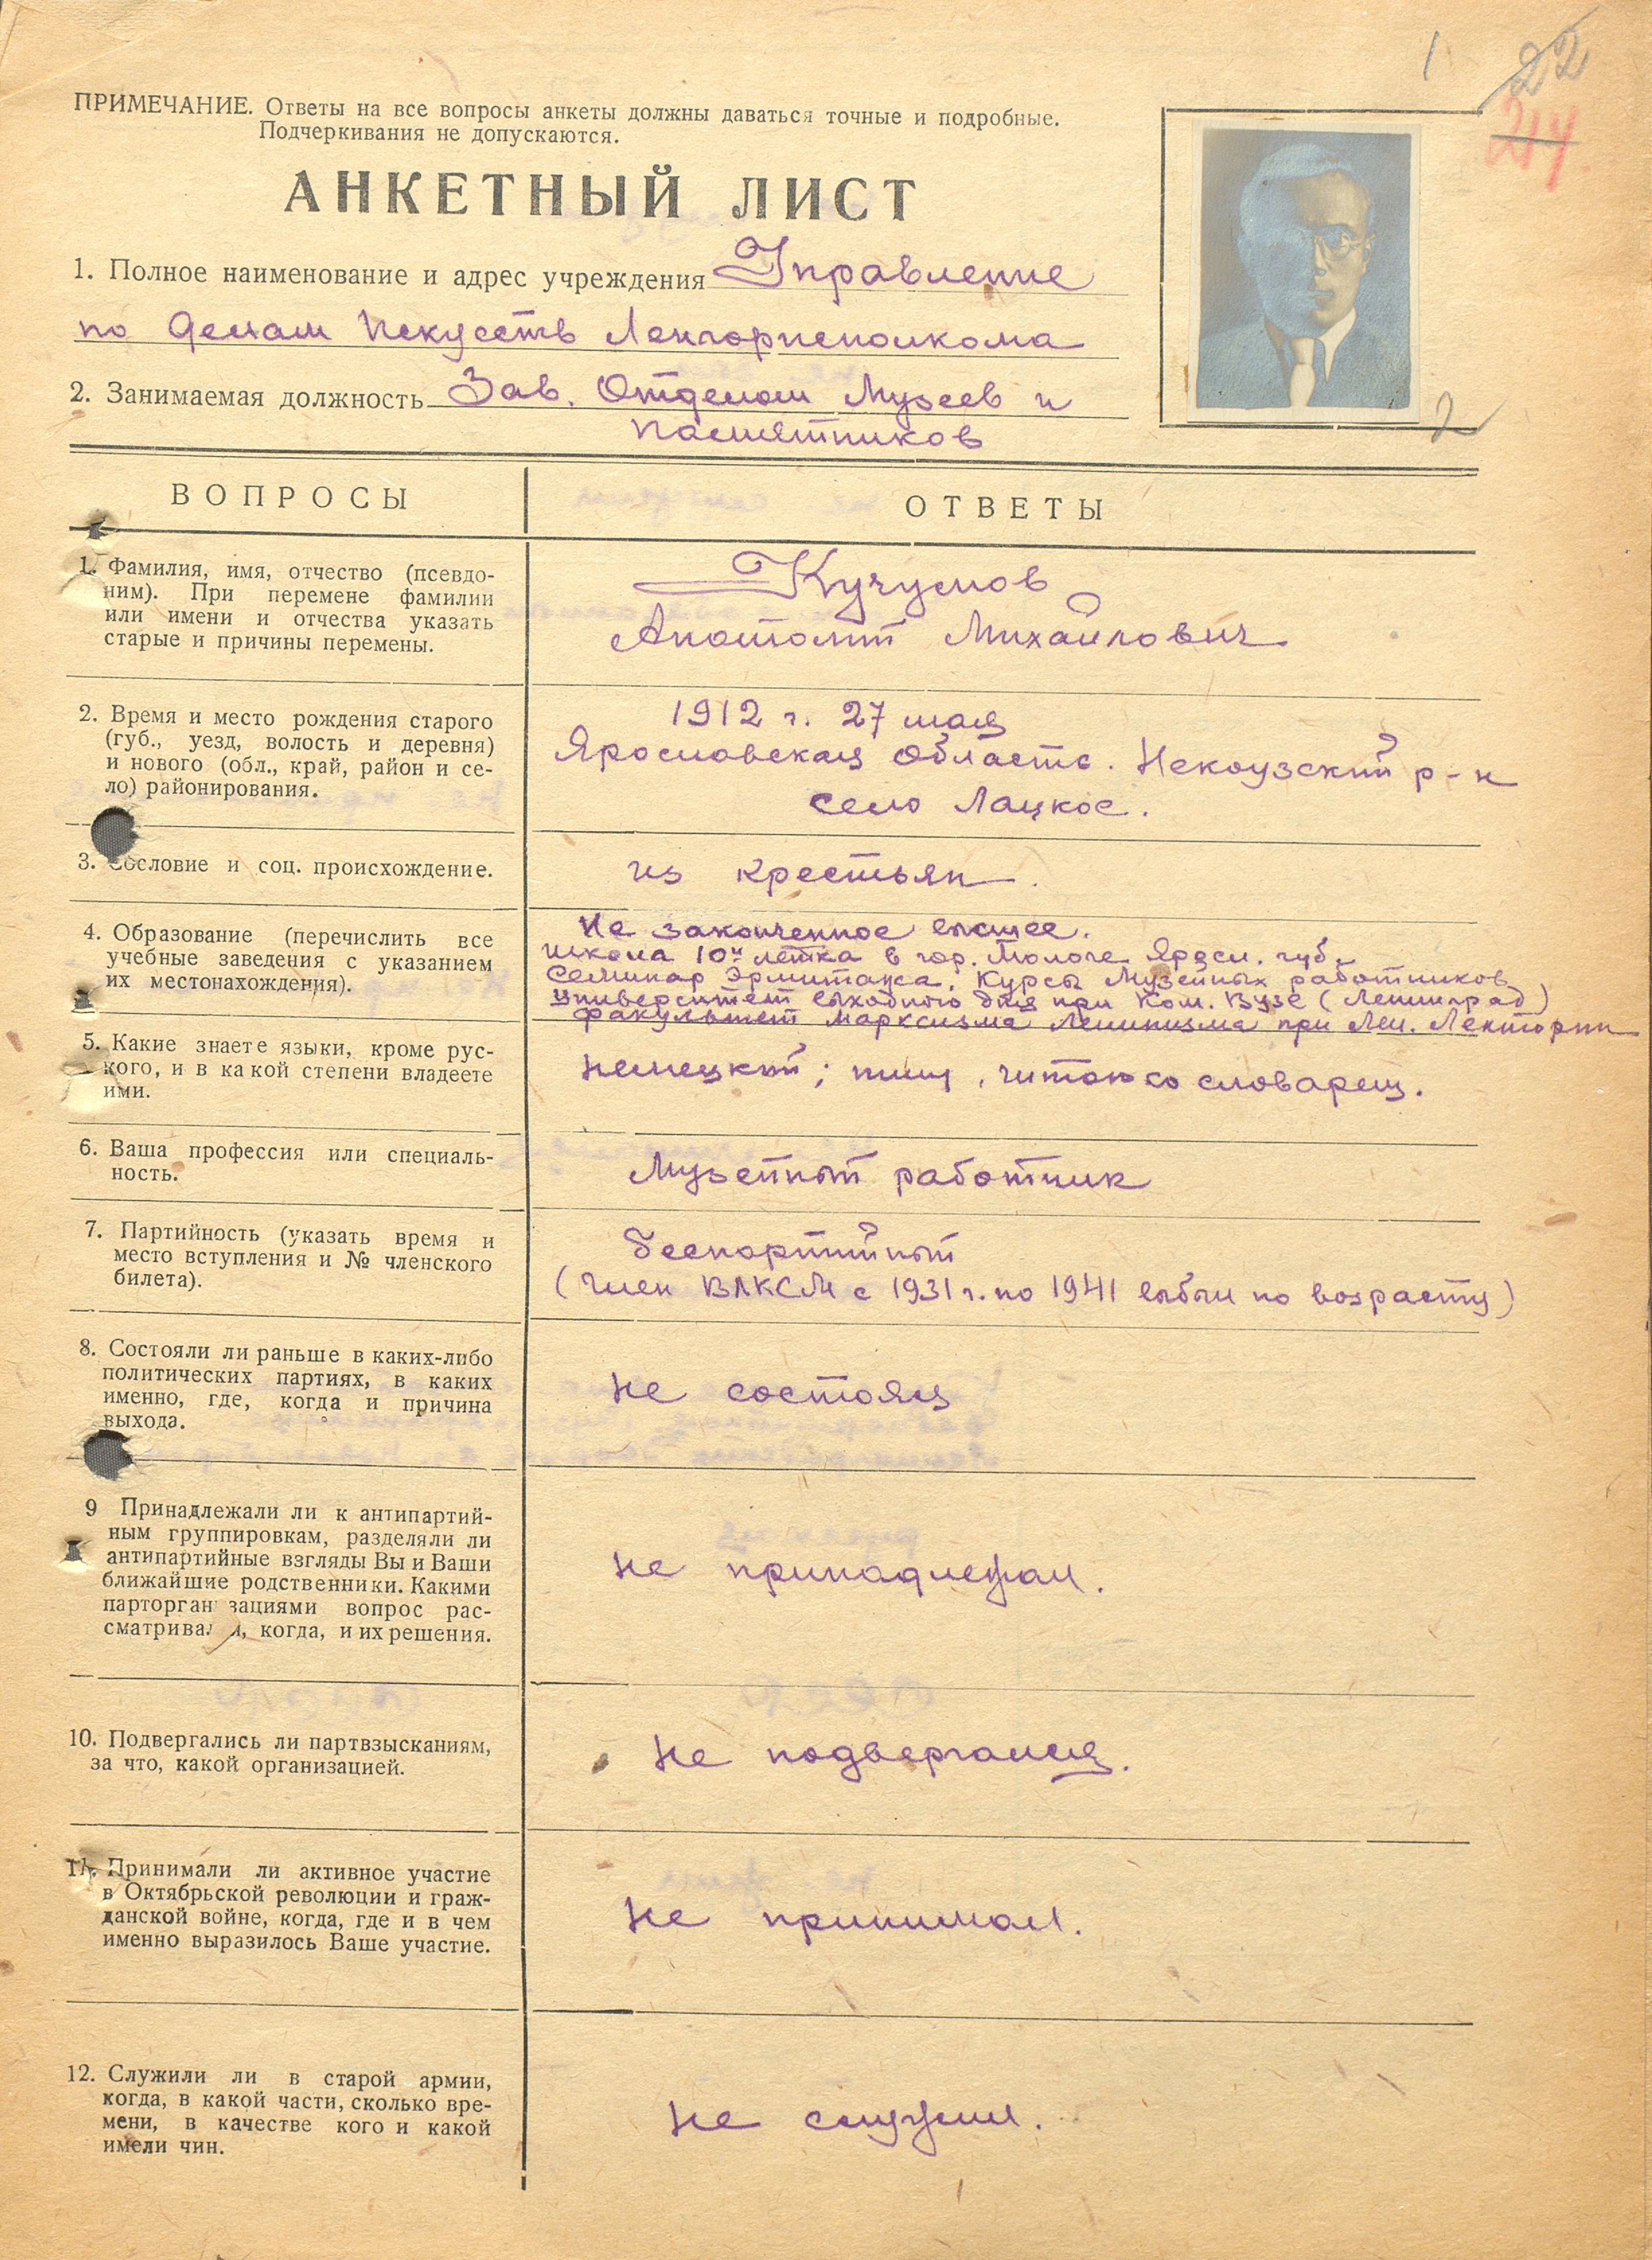 1 22
214.
ПРИМЕЧАНИЕ. Ответы на все вопросы анкеты должны даваться точные и подробные.
Подчеркивания не допускаются.
АНКЕТНЫЙ ЛИСТ
1. Полное наименование и адрес учреждения Управление
по делам Искусств Ленгорисполкома
2. Занимаемая должность Зав. Отделом Музеев и
Памятников
2
ВОПРОСЫ
ОТВЕТЫ
1. Фамилия, имя, отчество (псевдо-
ним). При перемене фамилии
или имени и отчества указать
старые и причины перемены.
Кучумов
Анатолий Михайлович
2. Время и место рождения старого
(губ., уезд, волость и деревня)
и нового (обл., край, район и се-
ло) районирования.
1912 г. 27 мая
Ярославская область. Некоузский р-н
село Лацкое.
3. Сословие и соц. происхождение.
из крестьян.
4. Образование (перечислить все
учебные заведения с указанием
их местонахождения).
Не законченное высшее.
школа 10ти летка в гор. Мологе Яросл. губ.
Семинар Эрмитажа. Курсы Музейных работников
Университет выходного дня при Ком. Вузе (Ленинград)
Факультет Марксизма Ленинизма при Лен. Лектории
5. Какие знаете языки, кроме рус-
кого, и в какой степени владеете
ими.
немецкий; пишу, читаю со словарем.
6. Ваша профессия или специаль-
ность.
Музейный работник
7. Партийность (указать время и
место вступления и № членского
билета).
беспартийный
(член ВЛКСМ с 1931 г. по 1941 выбыл по возрасту)
8. Состояли ли раньше в каких-либо
политических партиях, в каких
именно, где, когда и причина
выхода.
не состоял
9 Принадлежали ли к антипартий-
ным группировкам, разделяли ли
антипартийные взгляды Вы и Ваши
ближайшие родственники. Какими
парторганизациями вопрос рас-
сматривался, когда, и их решения.
не принадлежал.
10. Подвергались ли партвзысканиям,
за что, какой организацией.
не подвергался.
11. Принимали ли активное участие
в Октябрьской революции и граж-
данской войне, когда, где и в чем
именно выразилось Ваше участие.
не принимал.
12. Служили ли в старой армии,
когда, в какой части, сколько вре-
мени, в качестве кого и какой
имели чин.
не служил.